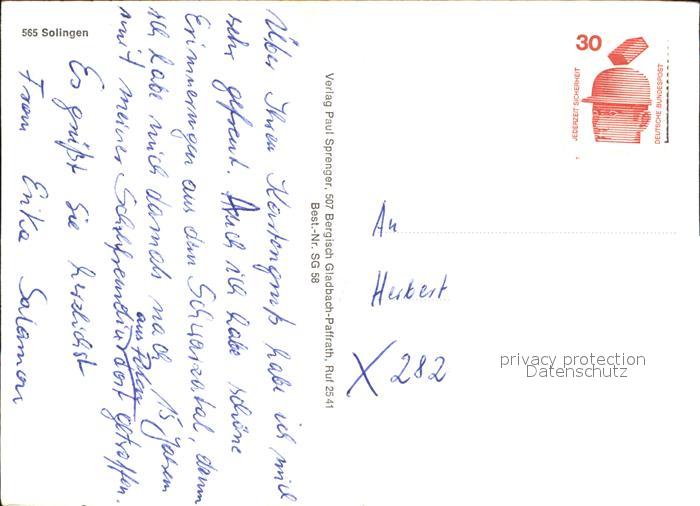 565 Solingen
Über Ihren Kartengruß habe ich mich
sehr gefreut. Auch ich habe schöne
Erinnerungen aus dem Schwarzatal, denn
ich habe mich damals nach 15 Jahren
mit meiner Schulfreundin dort getroffen.
aus Polen
Es grüßt Sie herzlichst
Frau Erika Salamon
Verlag Paul Sprenger, 507 Bergisch Gladbach-Paffrath, Ruf 2541
Best.-Nr. SG 58
30
JEDERZEIT SICHERHEIT
DEUTSCHE BUNDESPOST
An
Herbert
X 282
privacy protection
Datenschutz